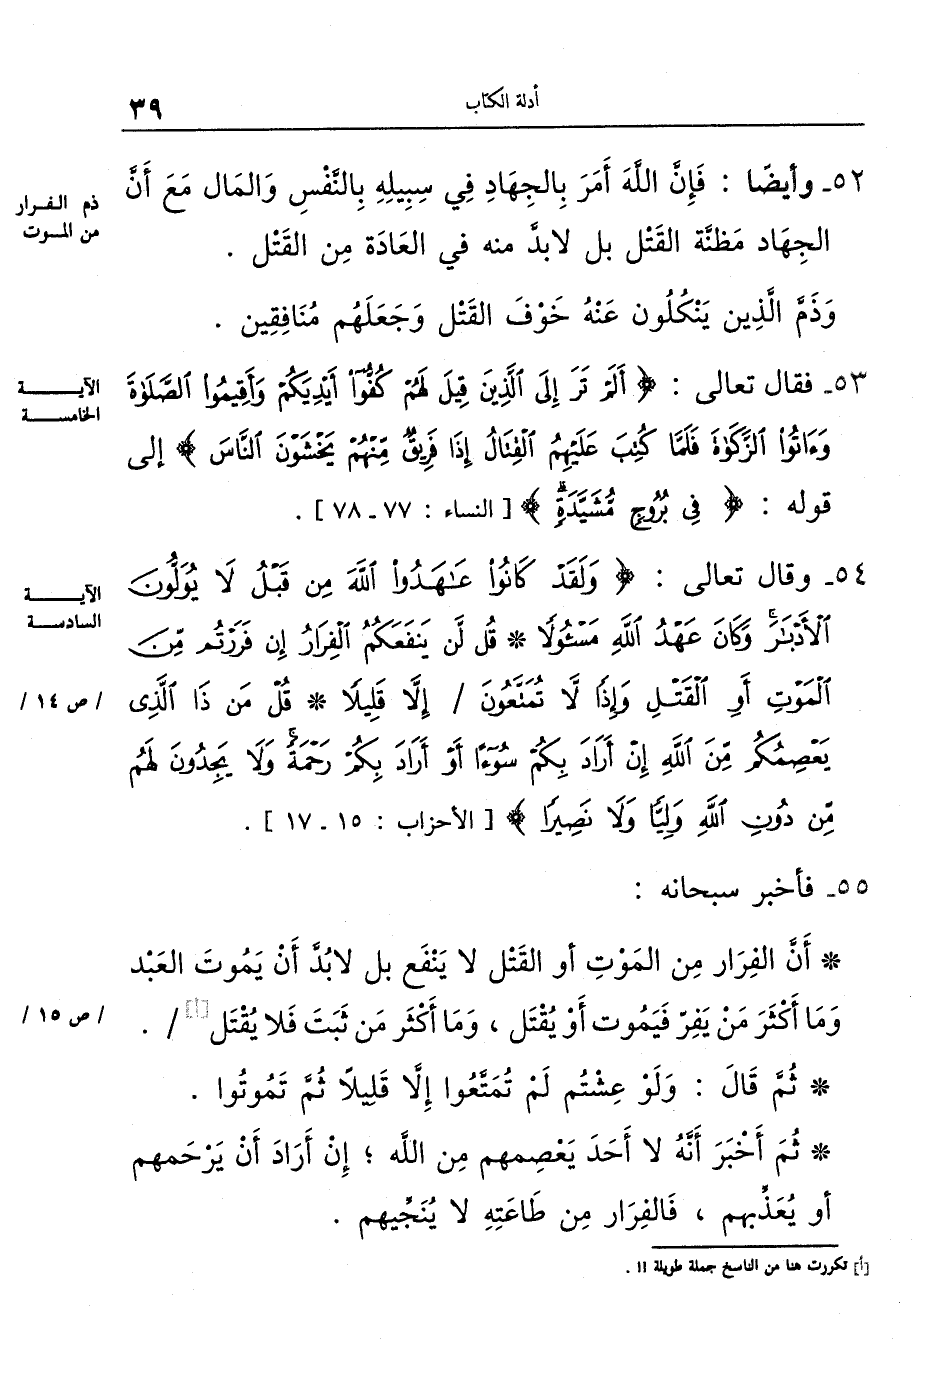 أدلة الكتاب ٣٩
٥٢ـ وأيضًا : فَإِنَّ اللَّهَ أَمَرَ بِالجِهَادِ فِي سِبِيلِهِ بِالنَّفْسِ وَالمَال مَعَ أَنَّ
ذم الفرار
من الموت
الجِهَاد مَظنَّة القَتْل بل لابدَّ منه في العَادَة مِن القَتْل .
وَذَمَّ الَّذِين يَنْكُلُون عَنْهُ خَوْفَ القَتْل وَجَعَلَهُم مُنَافِقِين .
٥٣ـ فقال تعالى : ﴿ أَلَمْ تَرَ إِلَى ٱلَّذِينَ قِيلَ لَهُمْ كُفُّوٓا۟ أَيْدِيَكُمْ وَأَقِيمُوا۟ ٱلصَّلَوٰةَ
الآيــــة
الخامســة
وَءَاتُوا۟ ٱلزَّكَوٰةَ فَلَمَّا كُتِبَ عَلَيْهِمُ ٱلْقِتَالُ إِذَا فَرِيقٌ مِّنْهُمْ يَخْشَوْنَ ٱلنَّاسَ ﴾ إلى
قوله : ﴿ فِى بُرُوجٍ مُّشَيَّدَةٍۗ ﴾ [ النساء : ٧٧ ـ ٧٨ ] .
٥٤ـ وقال تعالى : ﴿ وَلَقَدْ كَانُوا۟ عَـٰهَدُوا۟ ٱللَّهَ مِن قَبْلُ لَا يُوَلُّونَ
الآيــــة
السادسـة
ٱلْأَدْبَـٰرَۚ وَكَانَ عَهْدُ ٱللَّهِ مَسْـُٔولًا * قُل لَّن يَنفَعَكُمُ ٱلْفِرَارُ إِن فَرَرْتُم مِّنَ
ٱلْمَوْتِ أَوِ ٱلْقَتْلِ وَإِذًا لَّا تُمَتَّعُونَ / إِلَّا قَلِيلًا * قُلْ مَن ذَا ٱلَّذِى
/ ص ١٤ /
يَعْصِمُكُم مِّنَ ٱللَّهِ إِنْ أَرَادَ بِكُمْ سُوٓءًا أَوْ أَرَادَ بِكُمْ رَحْمَةًۚ وَلَا يَجِدُونَ لَهُم
مِّن دُونِ ٱللَّهِ وَلِيًّا وَلَا نَصِيرًا ﴾ [ الأحزاب : ١٥ ـ ١٧ ] .
٥٥ـ فأخبر سبحانه :
* أَنَّ الفِرَار مِن المَوْتِ أو القَتْل لا يَنْفَع بل لابُدَّ أَنْ يَمُوتَ العَبْد
وَمَا أَكْثَرَ مَنْ يَفِرّ فَيَمُوت أَوْ يُقْتَل ، وَمَا أَكْثَر مَن ثَبَتَ فَلا يُقْتَل [أ] / .
/ ص ١٥ /
* ثُمَّ قَالَ : وَلَوْ عِشْتُم لَمْ تُمَتَّعُوا إِلَّا قَلِيلًا ثُمَّ تَمُوتُوا .
* ثُمَ أَخْبَرَ أَنَّهُ لا أَحَدَ يَعْصِمهم مِن اللَّه ؛ إِنْ أَرَادَ أَنْ يَرْحَمهم
أو يُعَذِّبهم ، فَالفِرَار مِن طَاعَتِهِ لا يُنَجِّيهم .
[أ] تكررت هنا من الناسخ جملة طويلة !! .